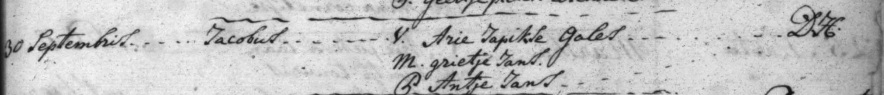 30 Septembris. Jacobus V. Arie Japikse Gales DH.
M. grietje Jans.
P. Antje Jans